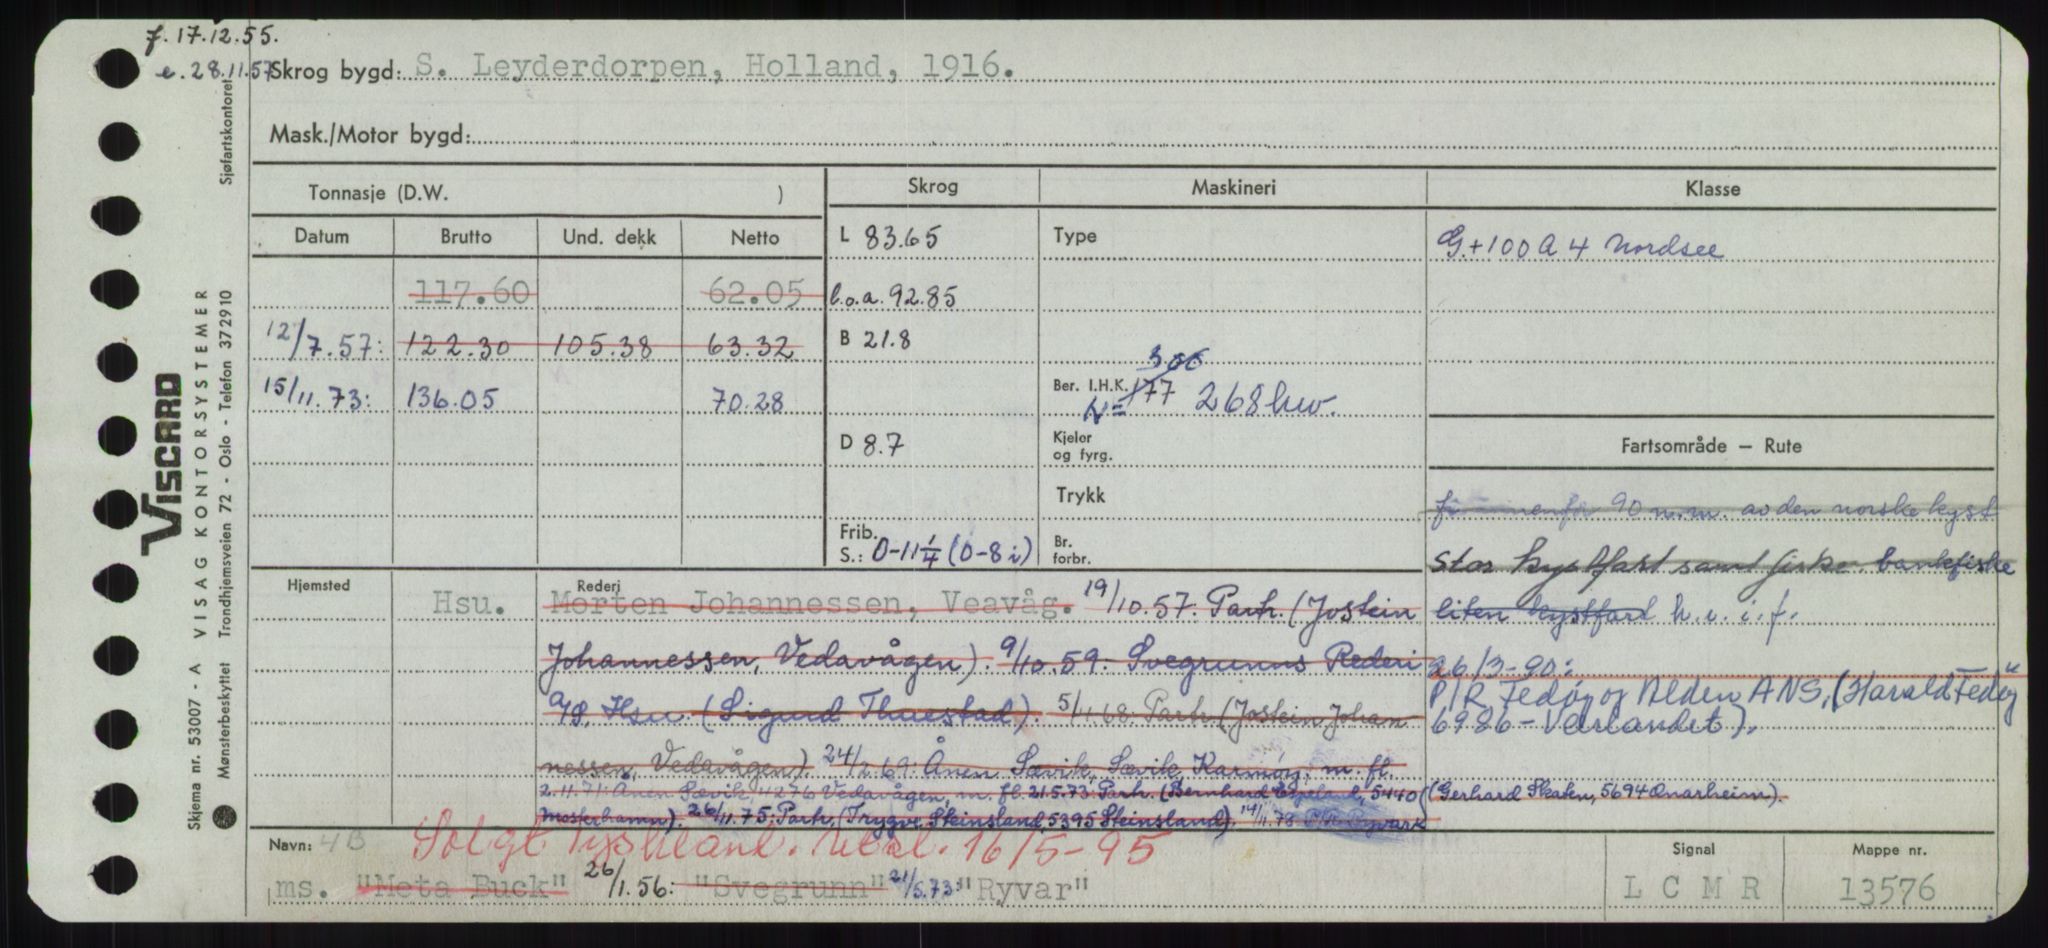 f. 17.12.55.
e. 28.11.57
Skrog bygd: S. Leyderdorpen, Holland, 1916.
Mask./Motor bygd:
Tonnasje (D.W. )
Skrog
Maskineri
Klasse
Datum Brutto Und. dekk Netto
117.60 62.05
12/7.57: 122.30 105.38 63.32
15/11.73: 136.05 70.28
L 83.65
l.o.a. 92.85
B 21.8
D 8.7
Frib.
S.: 0-11 1/4 (0-8 i)
Type
Ber. I.H.K. 177 300
N= 268 kw.
Kjeler
og fyrg.
Trykk
Br.
forbr.
G.+100 A 4 Nordsee
Fartsområde — Rute
90 n.m. av den norske kyst
Stor kystfart samt fiske. bankfiske
liten kystfart h. i. i. f.
26/3-90:
P/R Fedøy og Alden ANS, (Harald Fedøy
6986 - Værlandet).
Hjemsted
Rederi
Hsu. Morten Johannessen, Veavåg. 19/10.57: Partr. (Jostein
Johannessen, Vedavågen). 9/10.59: Svegrunns Rederi
A/S, Hsu. (Sigurd Thuestad). 5/11.68: Partr. (Jostein Johan
nessen, Vedavågen). 24/2.69: Ånen Sævik, Sævik, Karmøy, m. fl.
2.11.71: Ånen Sævik, 4276 Vedavågen, m. fl. 21.5.73: Partr. (Bernhard 5440
Mosterhamn). 26/11.75: Partr. (Trygve Steinsland, 5395 Steinsland). 14/11.78 P/R Ryvar
(Gerhard Skaten, 5694 Onarheim).
Solgt Tyskland. 16/5-95
Navn: 4B
ms. "Meta Buck" 26/1.56: "Svegrunn" 21/5.73: "Ryvar"
Signal
L C M R
Mappe nr.
13576
VISCARD
VISAG KONTORSYSTEMER
Skjema nr. 53007 - A
Mønsterbeskyttet Trondhjemsveien 72 - Oslo - Telefon 372910
Sjøfartskontoret